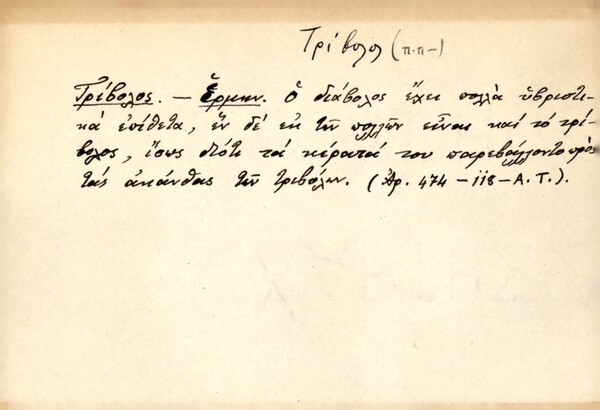 Τρίβολος (π.π-)
Τρίβολος. — Ἑρμην. Ὁ διάβολος ἔχει πολλὰ ὑβριστι-
κά ἐπίθετα, ἓν δὲ ἐκ τῶν πολλῶν εἶναι καὶ τό τρί-
βολος, ἴσως διότι τά κέρατά του παρεβάλλοντο πρὸς
τάς ἀκάνθας τῶν τριβόλων. (Ἀρ. 474 — 118 — Α. Τ.).